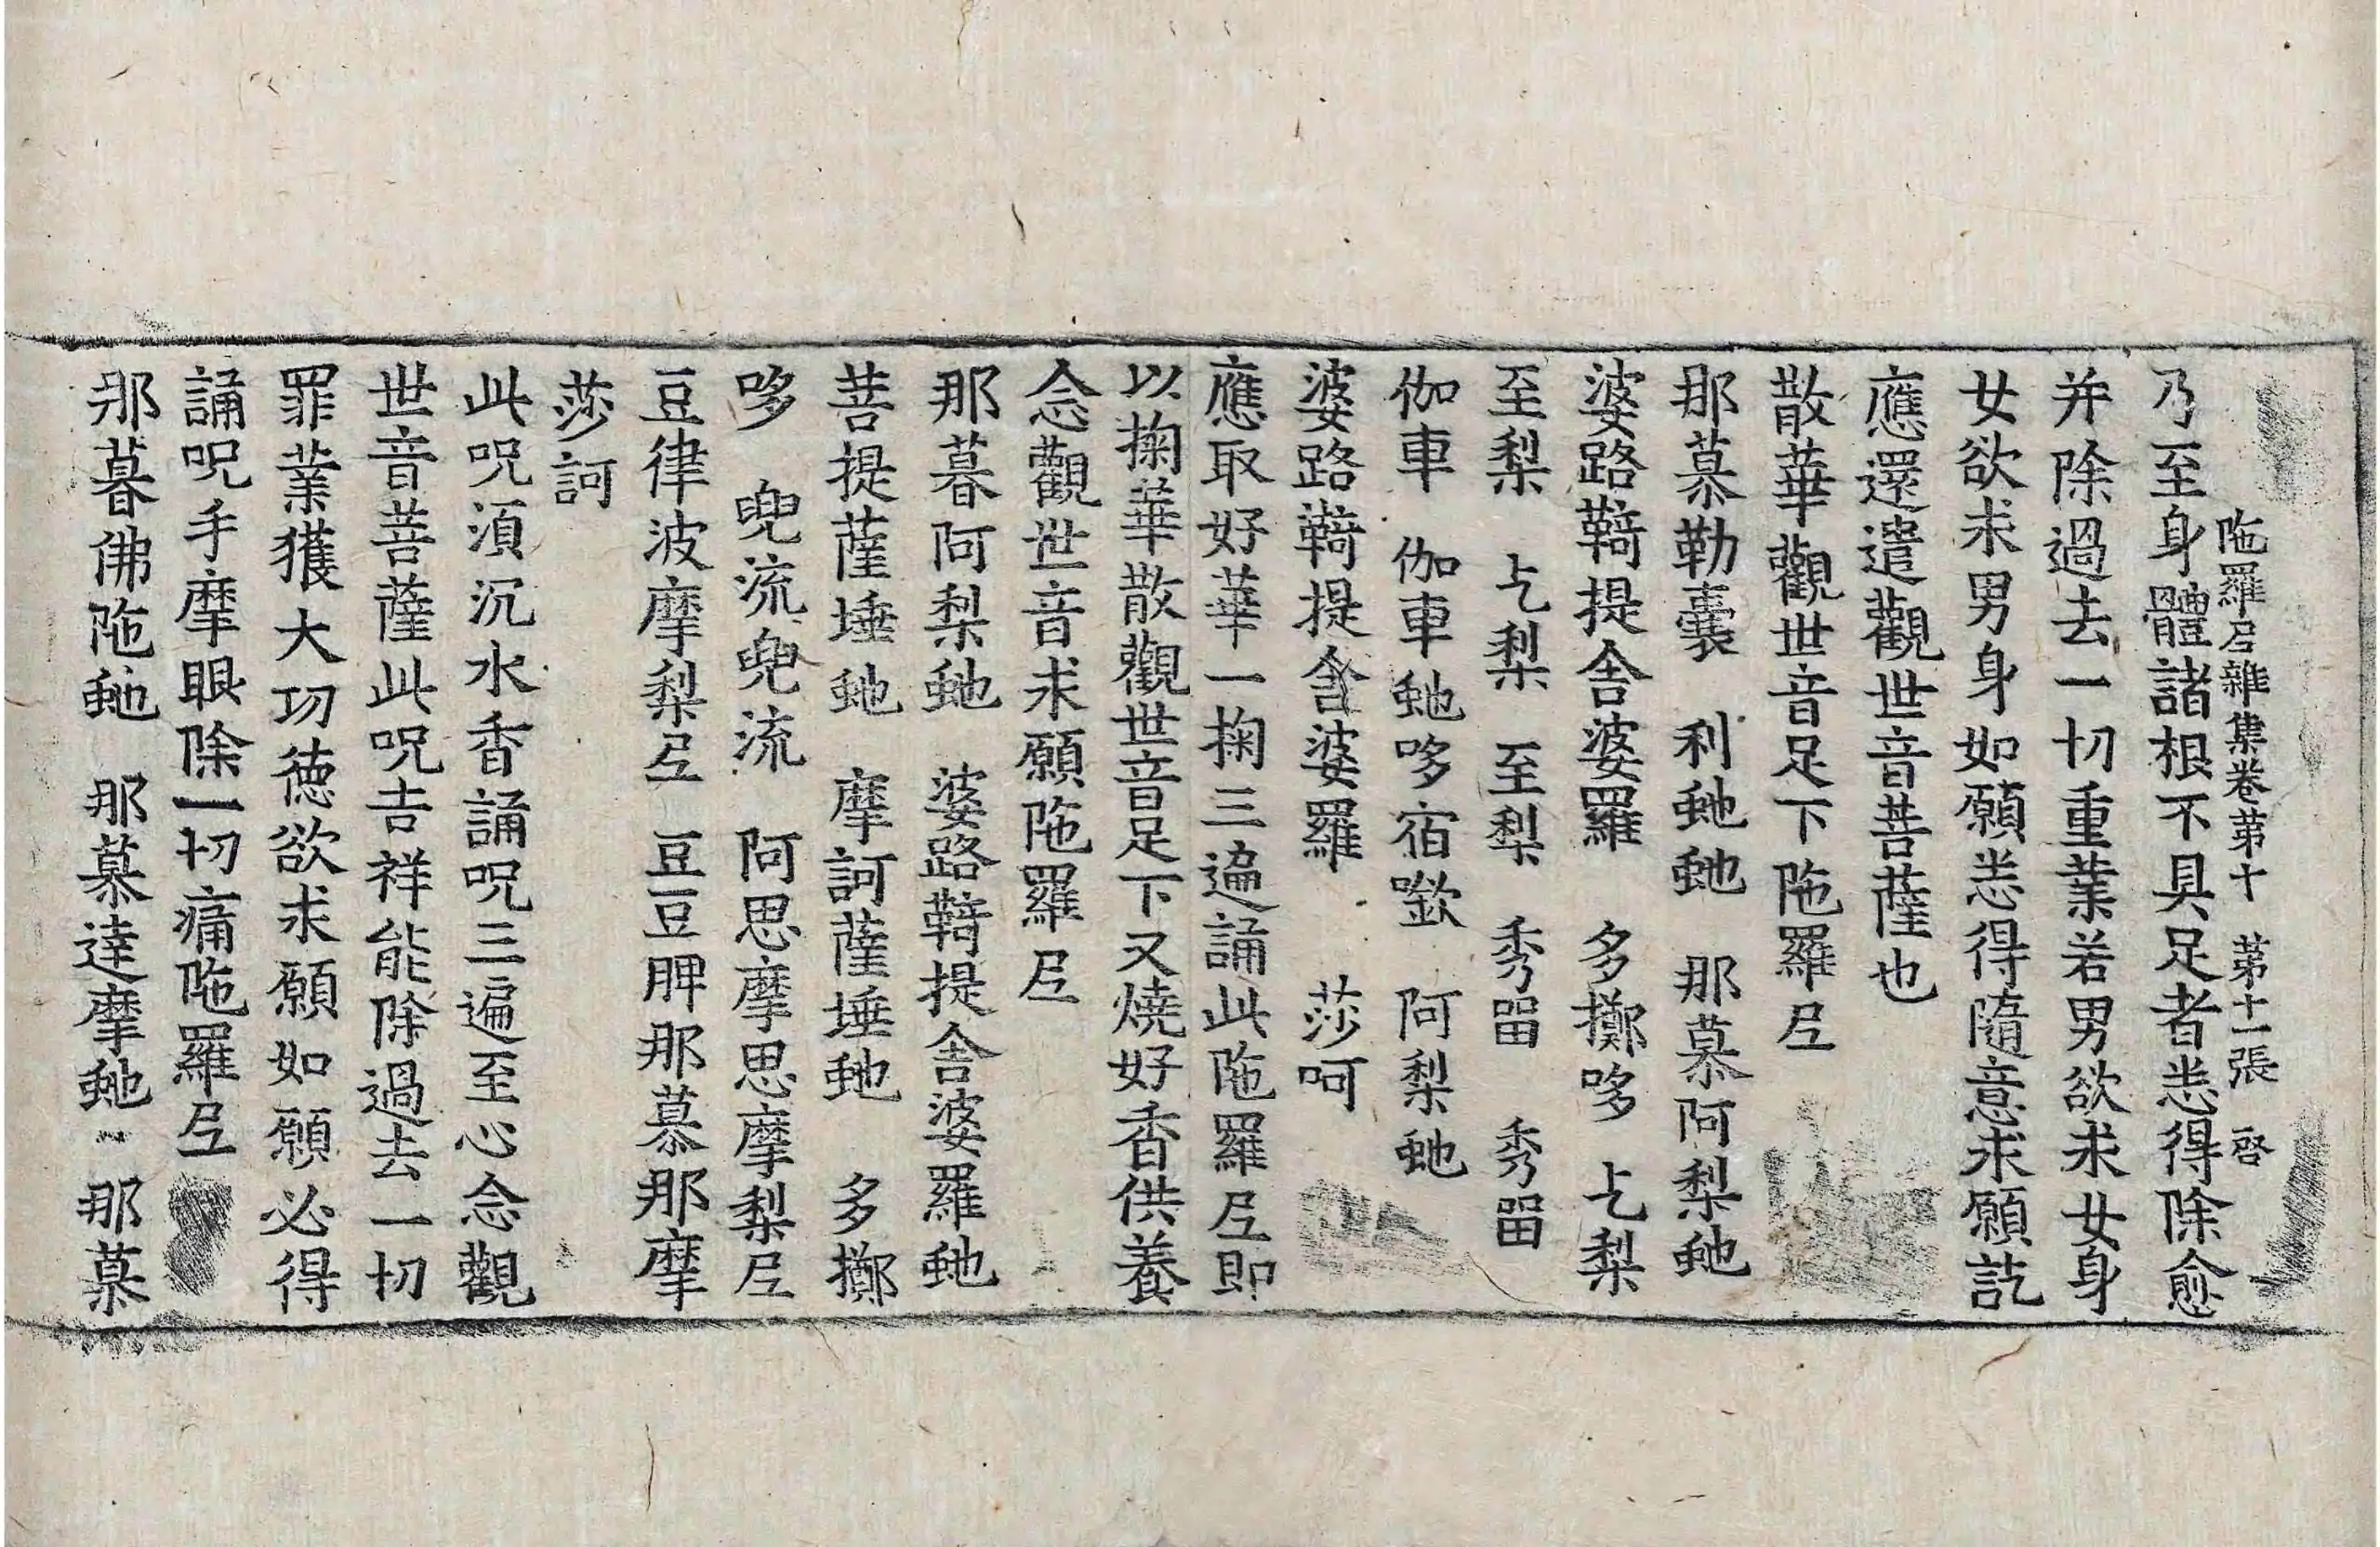 陁羅𡰱雜集卷第十 第十一張 啓
乃至身體諸根不具足者恙得除愈
并除過去一切重業若男欲求女身
女欲求男身如願恙得隨意求願訖
應還遣觀世音菩薩也
散華觀世音足下陁羅𡰱
那慕勒囊 利虵虵 那慕阿梨虵
婆路鞳提舍婆羅 多擲哆 𠧗梨
至梨 𠧗梨 至梨 秀㽞 秀㽞
伽車 伽車虵哆宿 阿梨虵
婆路提舍婆羅 莎呵
應取好華一掬三遍誦此陁羅𡰱即
以掬華散觀世音足下又燒好香供養
念觀世音求願陁羅𡰱
那暮阿梨虵 婆路提舍婆羅虵
菩提薩埵虵 摩訶薩埵虵 多擲
哆 兜流兜流 阿思摩思摩梨𡰱
豆律波摩梨𡰱 豆豆脾那慕那摩
莎訶
此呪湏沉水香誦呪三遍至心念觀
世音菩薩此呪吉祥能除過去一切
罪業獲大功德欲求願如願必得
誦呪手摩眼除一切痛陁羅𡰱
那暮佛陁虵 那慕達摩虵 那慕